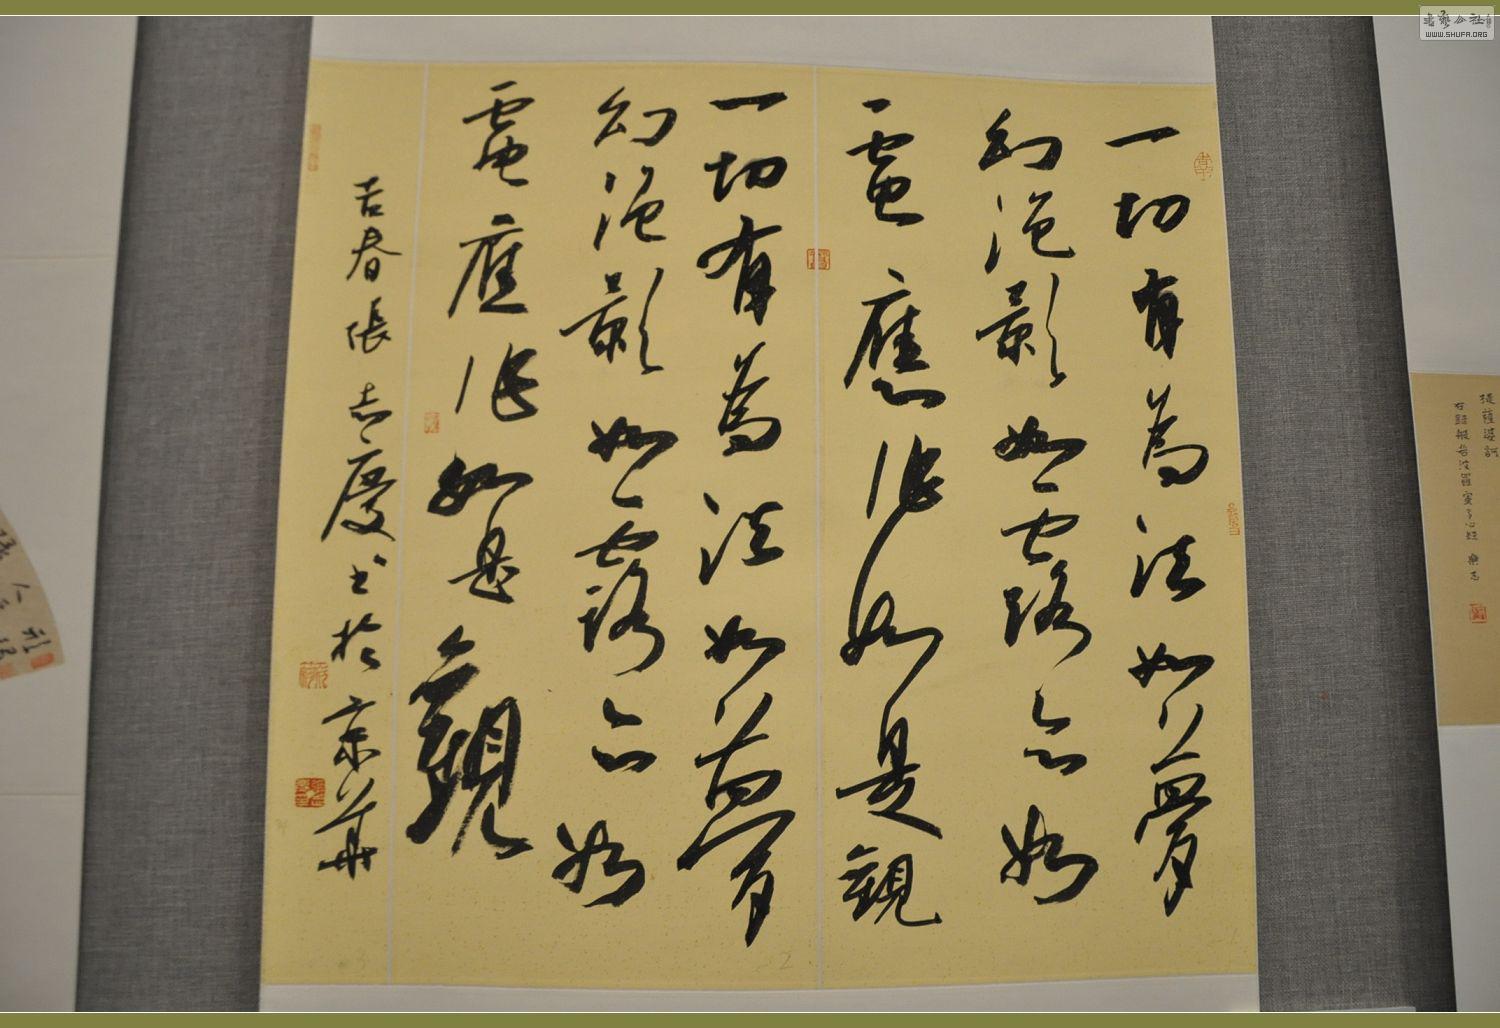 一切有為法如夢
幻泡影如露亦如
電應作如是觀
一切有為法如夢
幻泡影如露亦如
電應作如是觀
吉春張志慶书於京華
提薩婆訶
右錄般若波羅蜜多心經
WWW.SHUFA.ORG